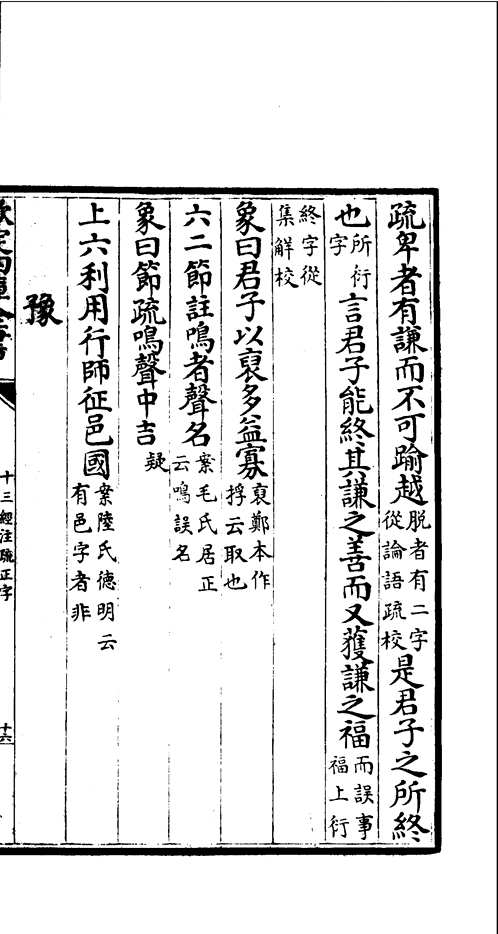 疏卑者有謙而不可踰越脱者有二字從論語疏校是君子之所終
也所衍字言君子能終其謙之善而又獲謙之福而誤事福上衍
終字從集解校
象曰君子以裒多益寡裒鄭本作捊云取也
六二節註鳴者聲名案毛氏居正云鳴誤名
象曰節疏鳴聲中吉疑
上六利用行師征邑國案陸氏德明云有邑字者非
豫
十三經注疏正字
十六